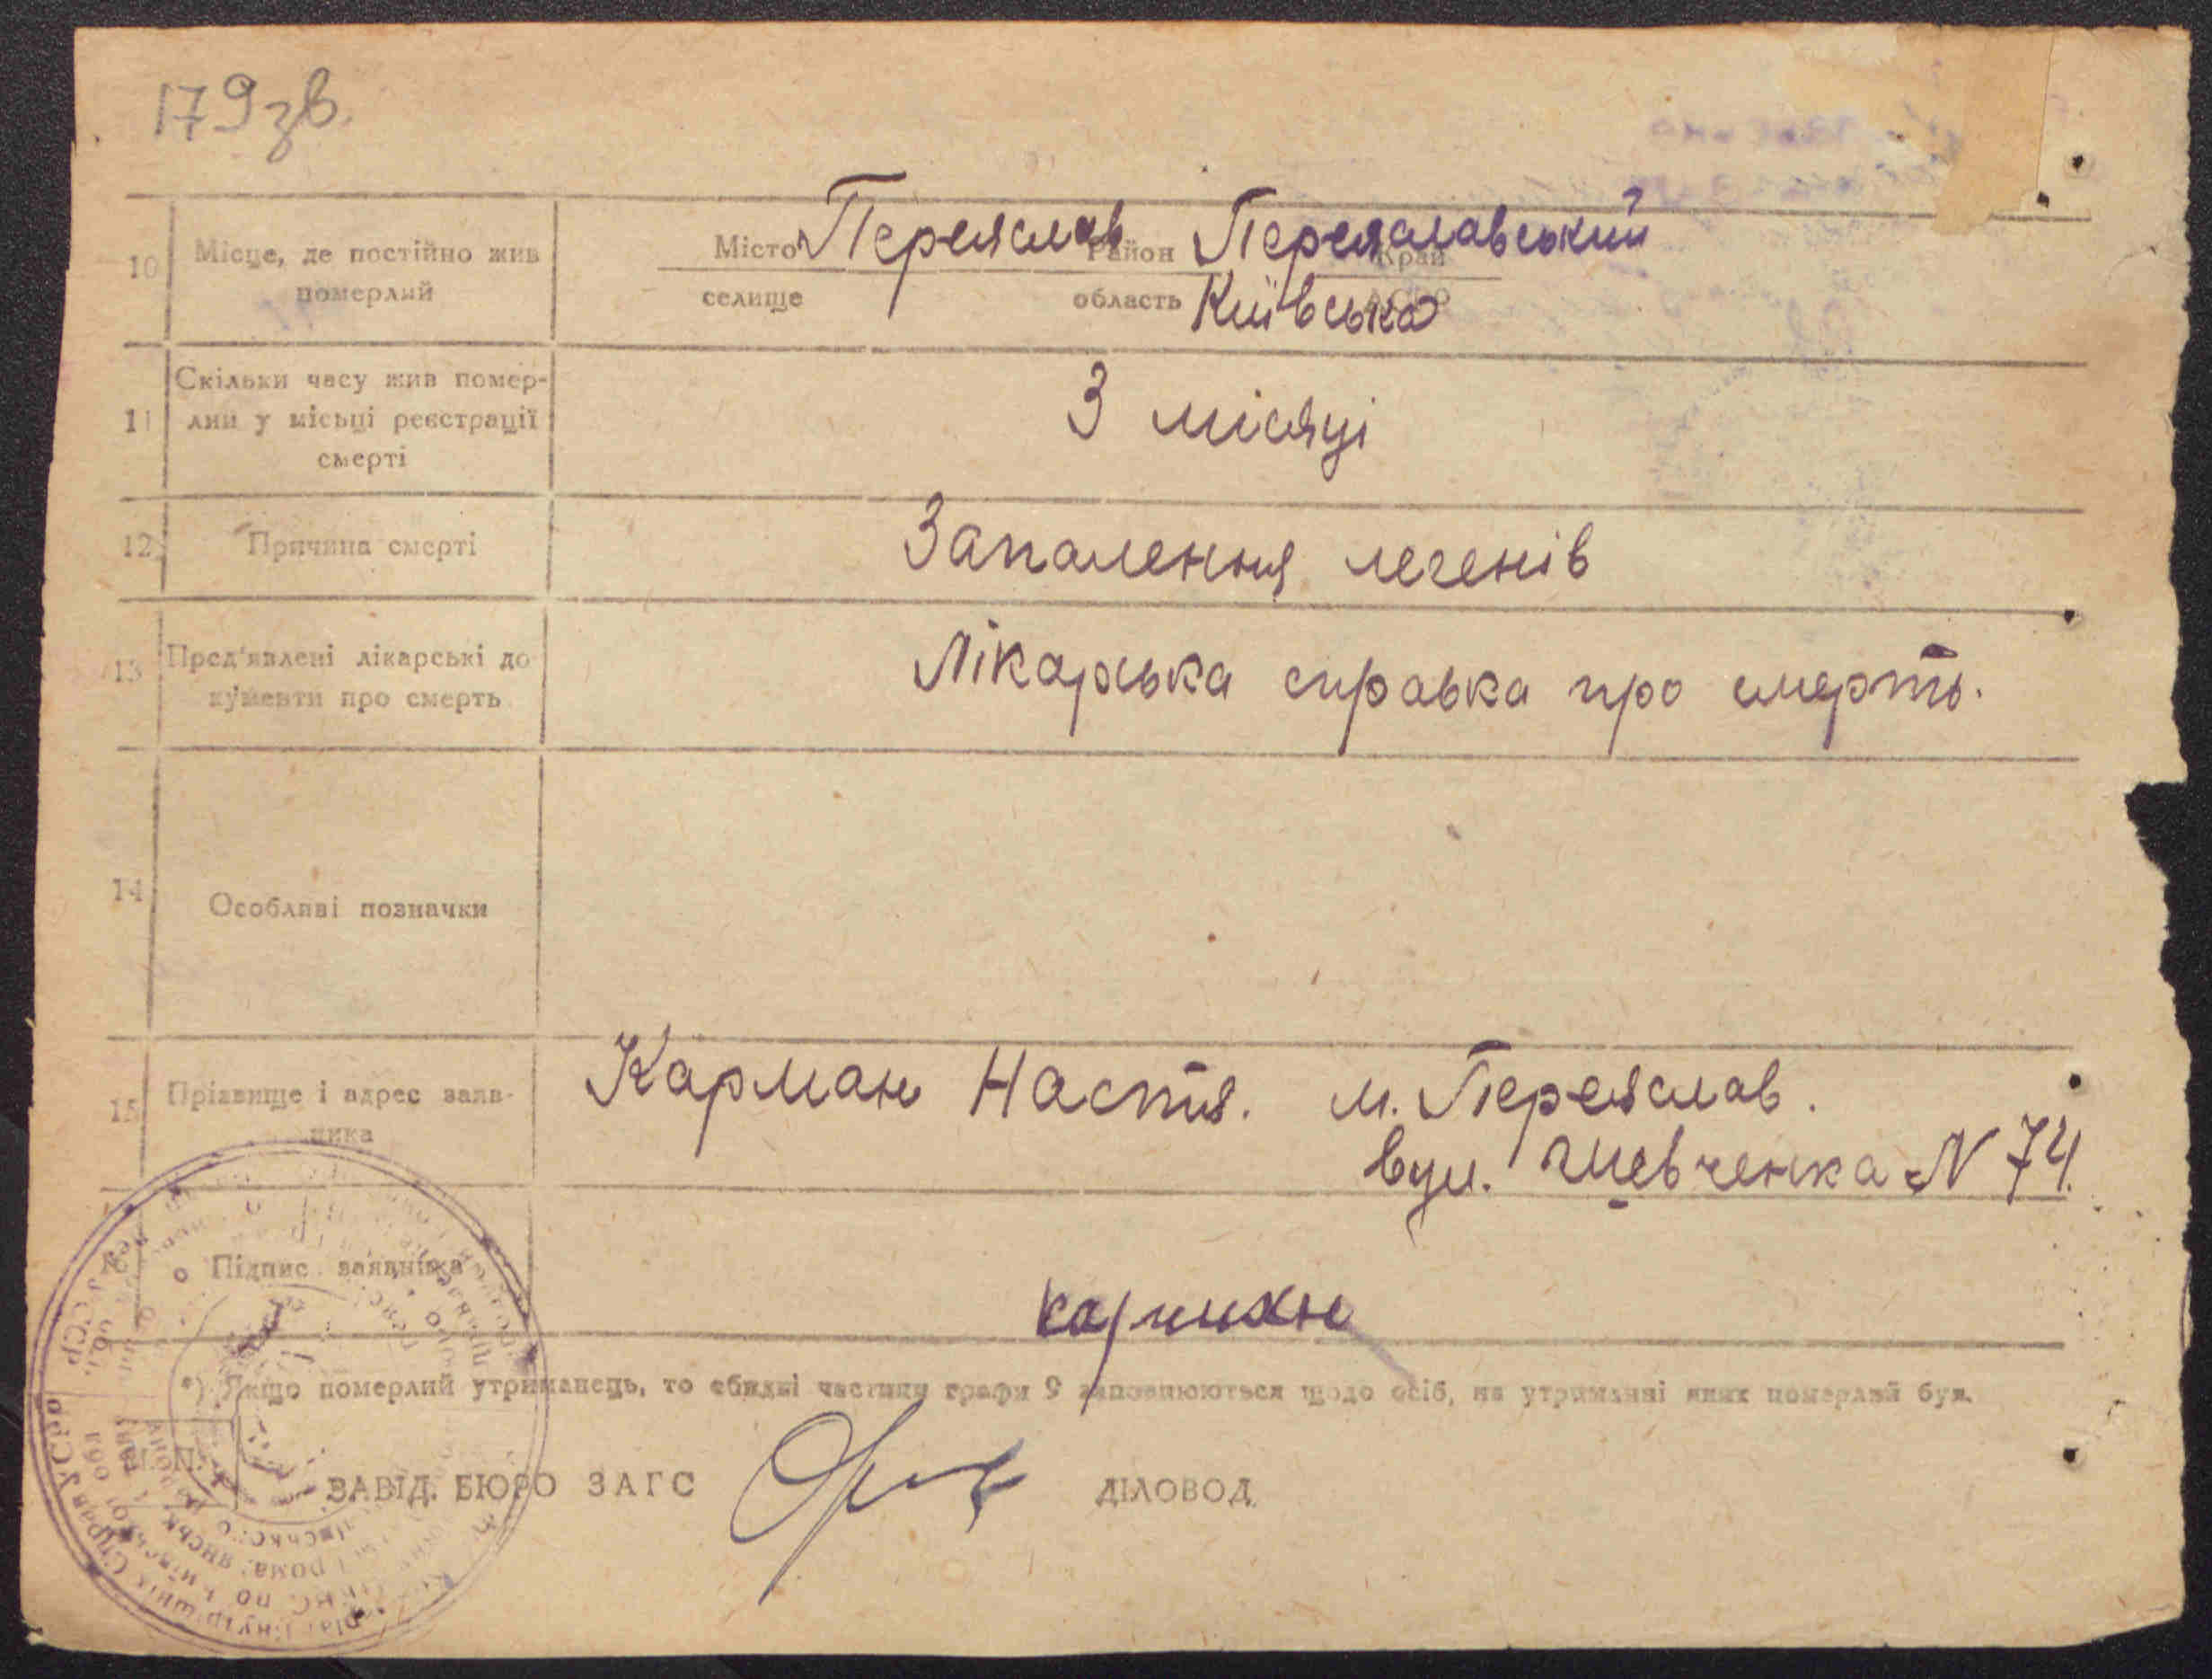 179зв.
10 Місце, де постійно жив померлий
Місто Переяслав Район Переяславський Край
селище область Київська АСРР
11 Скільки часу жив помер-
лий у місьці реєстрації
смерті
3 місяці
12 Причина смерті Запалення легенів
13 Пред'явлені лікарські до
кументи про смерть
Лікарська справка про смерть.
14 Особливі позначки
15 Прізвище і адрес заяв-
ника
Карман Настя. м. Переяслав.
вул. Шевченка N 74.
Підпис заявника
*) Якщо померлий утриманець, то обидві частини графи 9 заповнюються щодо осіб, на утриманні яких померлий був.
М. П.
ЗАВІД. БЮРО ЗАГС ДІЛОВОД